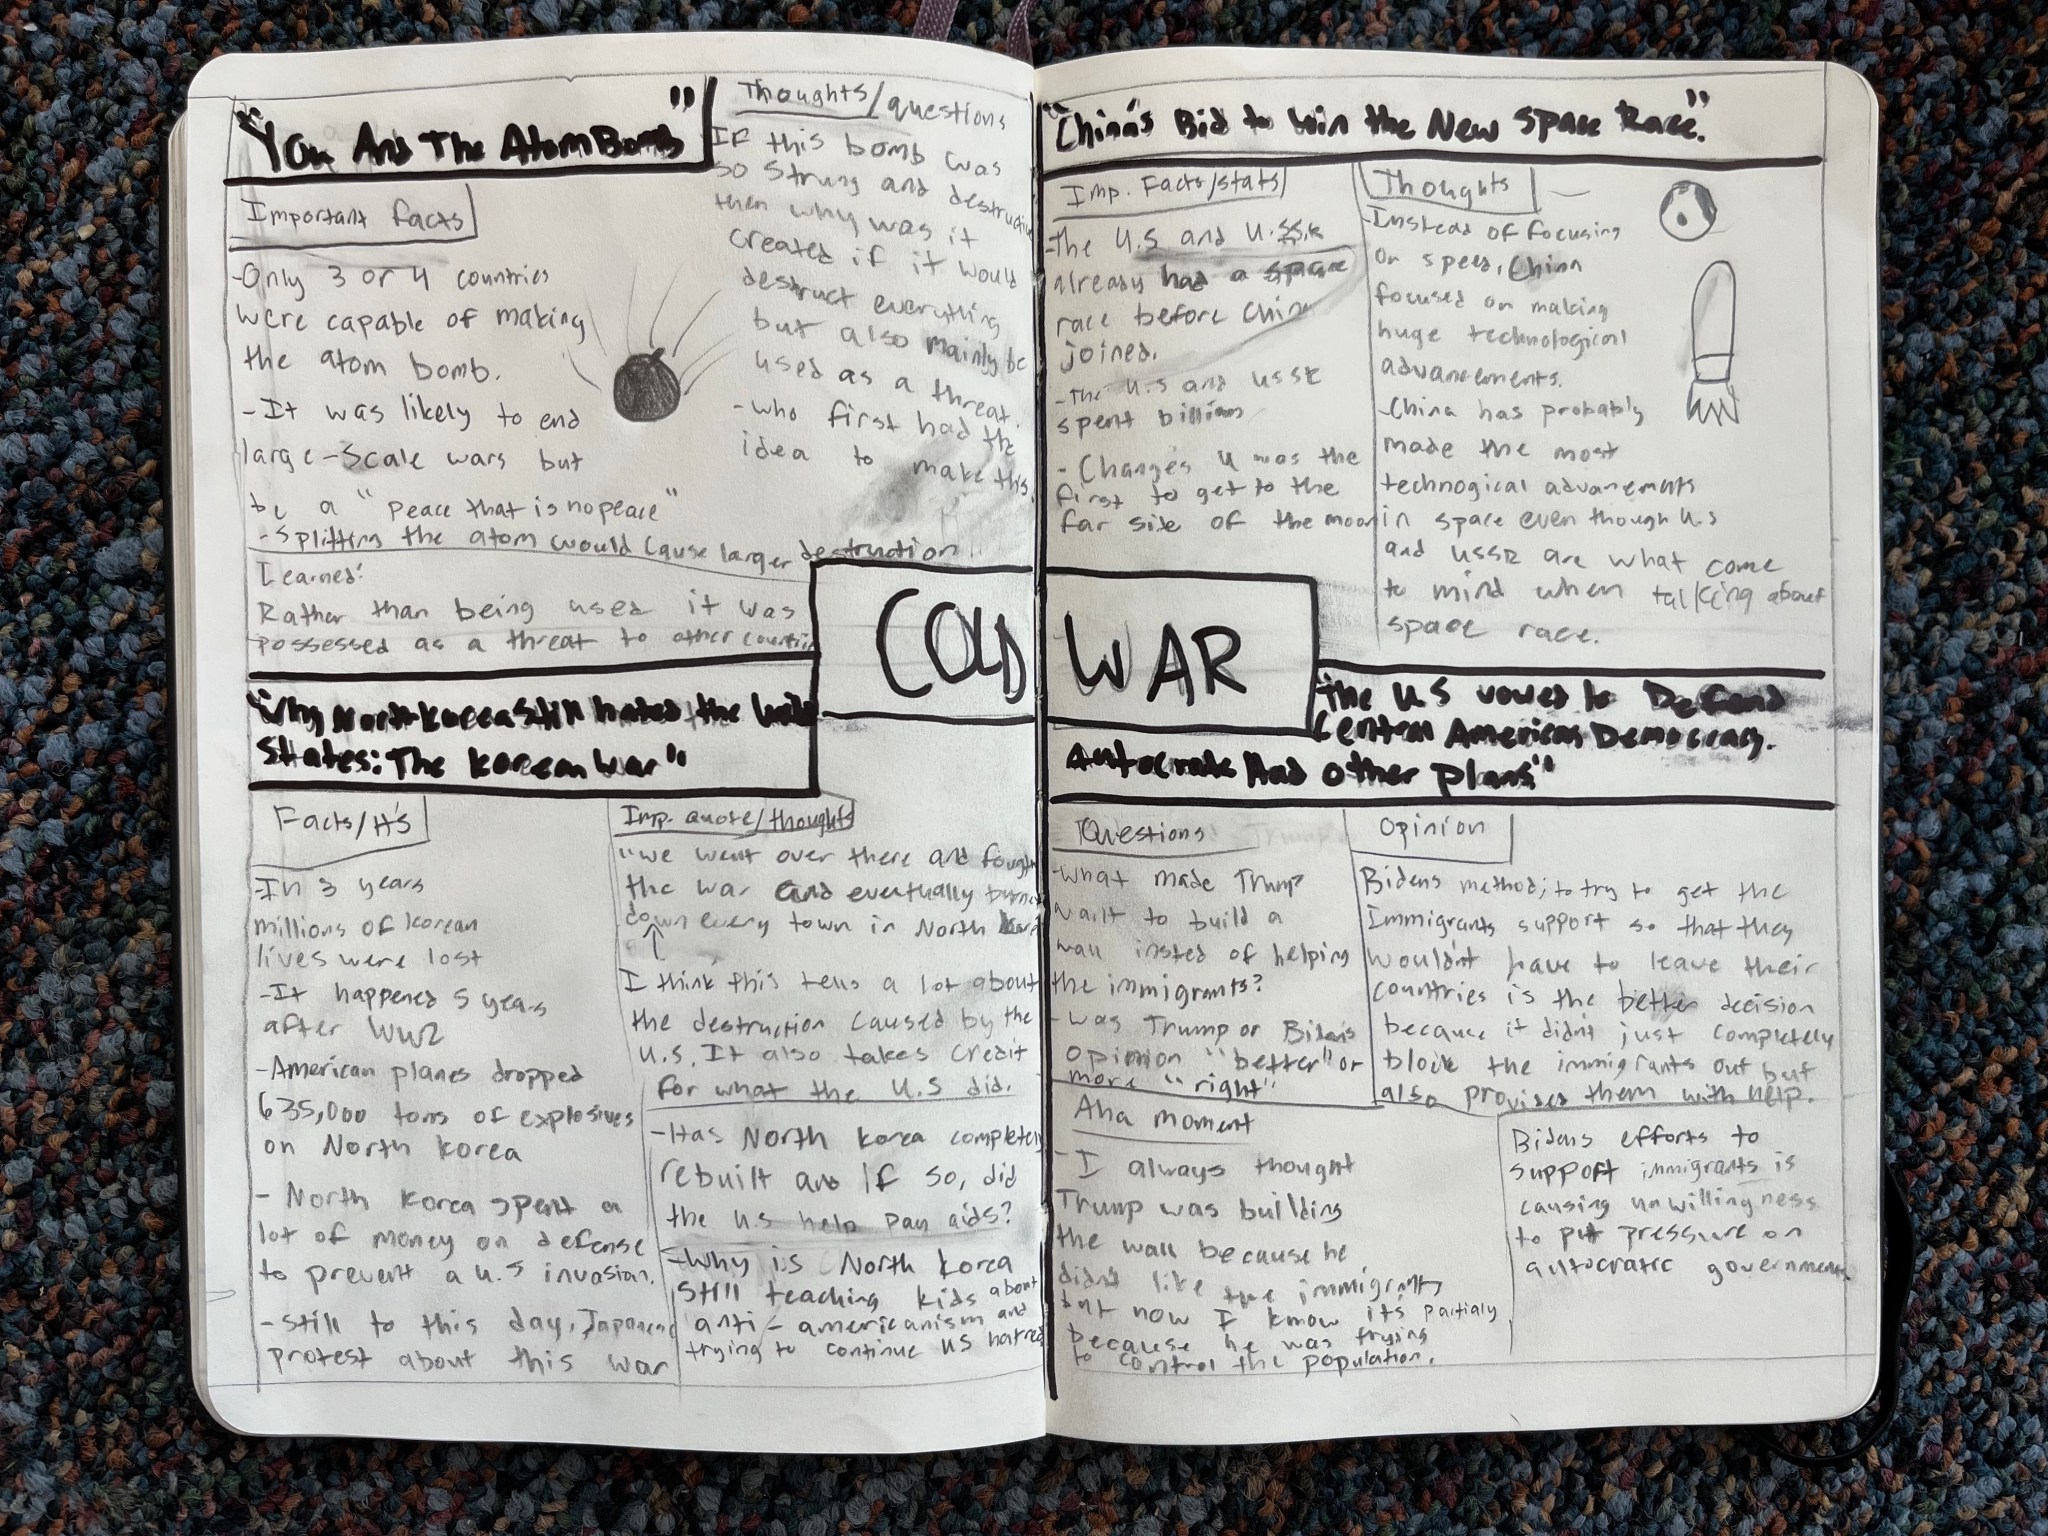 "You And The Atom Bomb"
Important facts
-Only 3 or 4 countries
were capable of making
the atom bomb.
-It was likely to end
large-scale wars but
a "peace that is no peace"
-Splitting the atom would cause larger destruction
Learned:
Rather than being used it was
possessed as a threat to other
Thoughts/questions
If this bomb was
so strung and destructive
then why was it
created if it would
destruct everything
but also mainly be
used as a threat.
-who first had the
idea to make this.
COLD WAR
"Why North Korea still hated the
States: The Korean War"
Facts/#'s
-In 3 years
millions of korean
lives were lost
-It happened 5 years
after WW2
-American planes dropped
635,000 tons of explosives
on North Korea
- North Korea spent a
lot of money on defense
to prevent a U.S invasian.
-still to this day, Japanese
protest about this war
Imp. quote/thoughts
"we went over there and fought
the war and eventually
down every town in North
I think this tells a lot about
the destruction caused by the
U.S. It also takes credit
for what the U.S did.
-Has North Korea completely
rebuilt and If so, did
the U.S help pay aids?
-Why is North Korea
still teaching kids about
anti-americanism and
trying to continue US hatred
"China's Bid to Win the New Space Race."
Imp. Facts/stats
-The U.S and
already had a space
race before China
joined.
-The U.S and USSR
spent billions
- Change's 4 was the
first to get to the
far side of the moon
Thoughts
-Instead of focusing
on speed, China
focused on making
huge technological
advancements.
-China has probably
made the most
technogical advancements
in space even though U.S
and USSR are what come
to mind when talking about
space race.
The U.S vowed to Defend
Central American Democracy.
Autocrats Had other plans"
Questions
-What made Trump
want to build a
wall insted of helping
the immigrants?
-was Trump or Biden's
opinion "better" or
more "right"
Opinion
Bidens method; to try to get the
Immigrants support so that they
wouldn't have to leave their
countries is the better decision
because it didn't just completely
block the immigrants out but
also provided them with help.
Aha moment
-I always thought
Trump was building
the wall because he
didn't like the immigrants
but now I know its partialy
because he was trying
to control the population.
Bidens efforts to
support immigrants is
causing unwillingness
to put pressure on
autocratic governments.